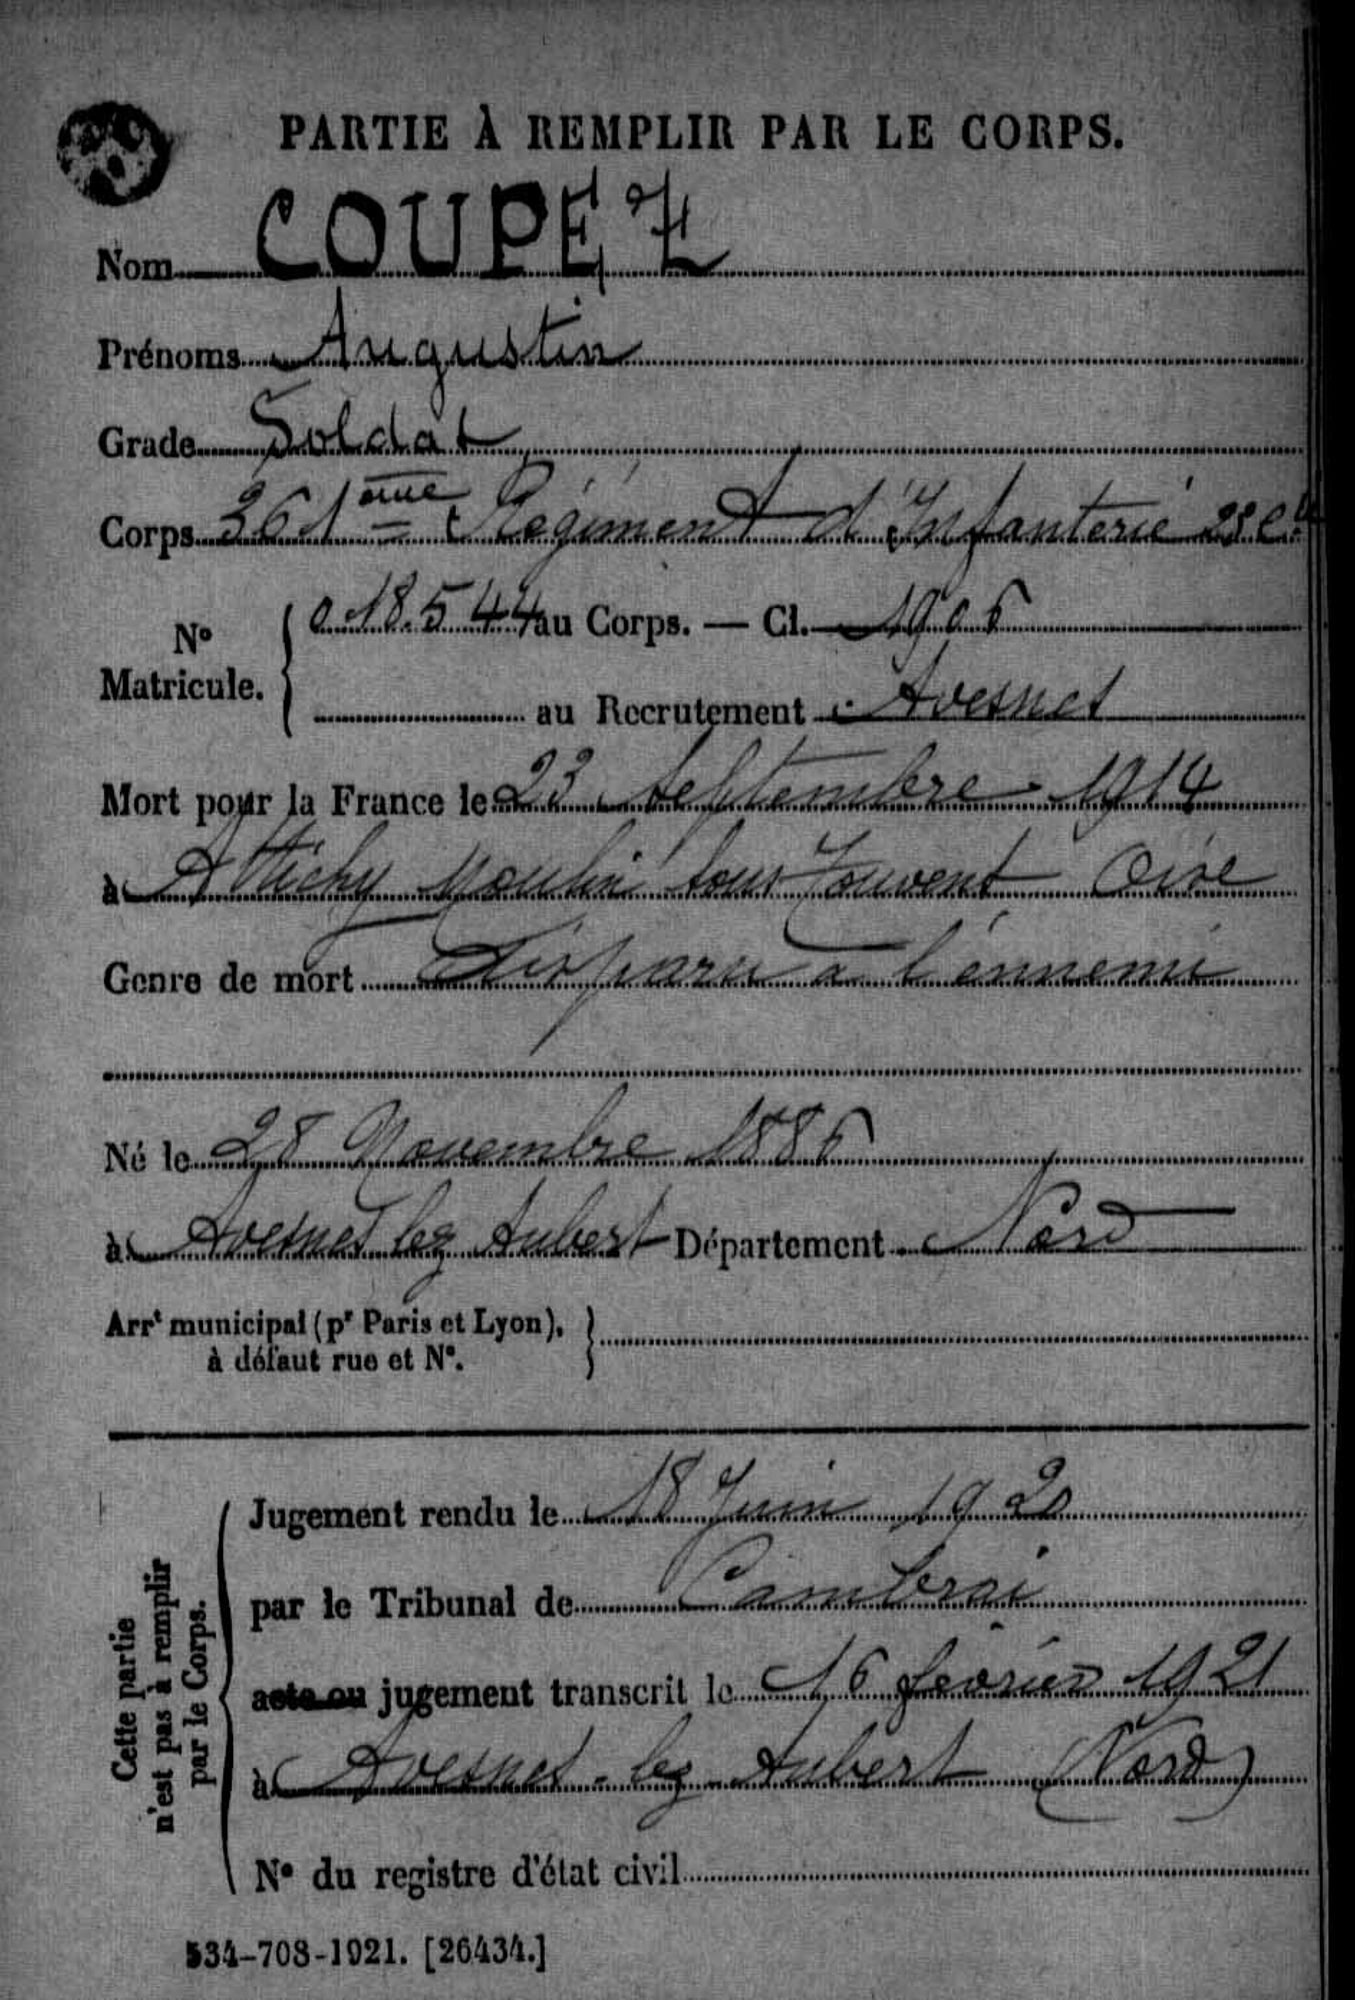 PARTIE À REMPLIR PAR LE CORPS.
Nom COUPEZ
Prénoms Augustin
Grade Soldat
Corps 361ème Régiment d'Infanterie 28e Cie
N° Matricule. 018.544 au Corps. — Cl. 1906
au Recrutement Avesnes
Mort pour la France le 23 Septembre 1914
à Attichy Moulin sous Touvent Oise
Genre de mort disparu à l'ennemi
Né le 28 Novembre 1886
à Avesnes lez Aubert Département Nord
Arrt municipal (pr Paris et Lyon),
à défaut rue et N°.
Cette partie
n'est pas à remplir
par le Corps.
Jugement rendu le 18 Juin 1920
par le Tribunal de Cambrai
acte ou jugement transcrit le 16 février 1921
à Avesnes-lez-Aubert (Nord)
N° du registre d'état civil
534-708-1921. [26434.]